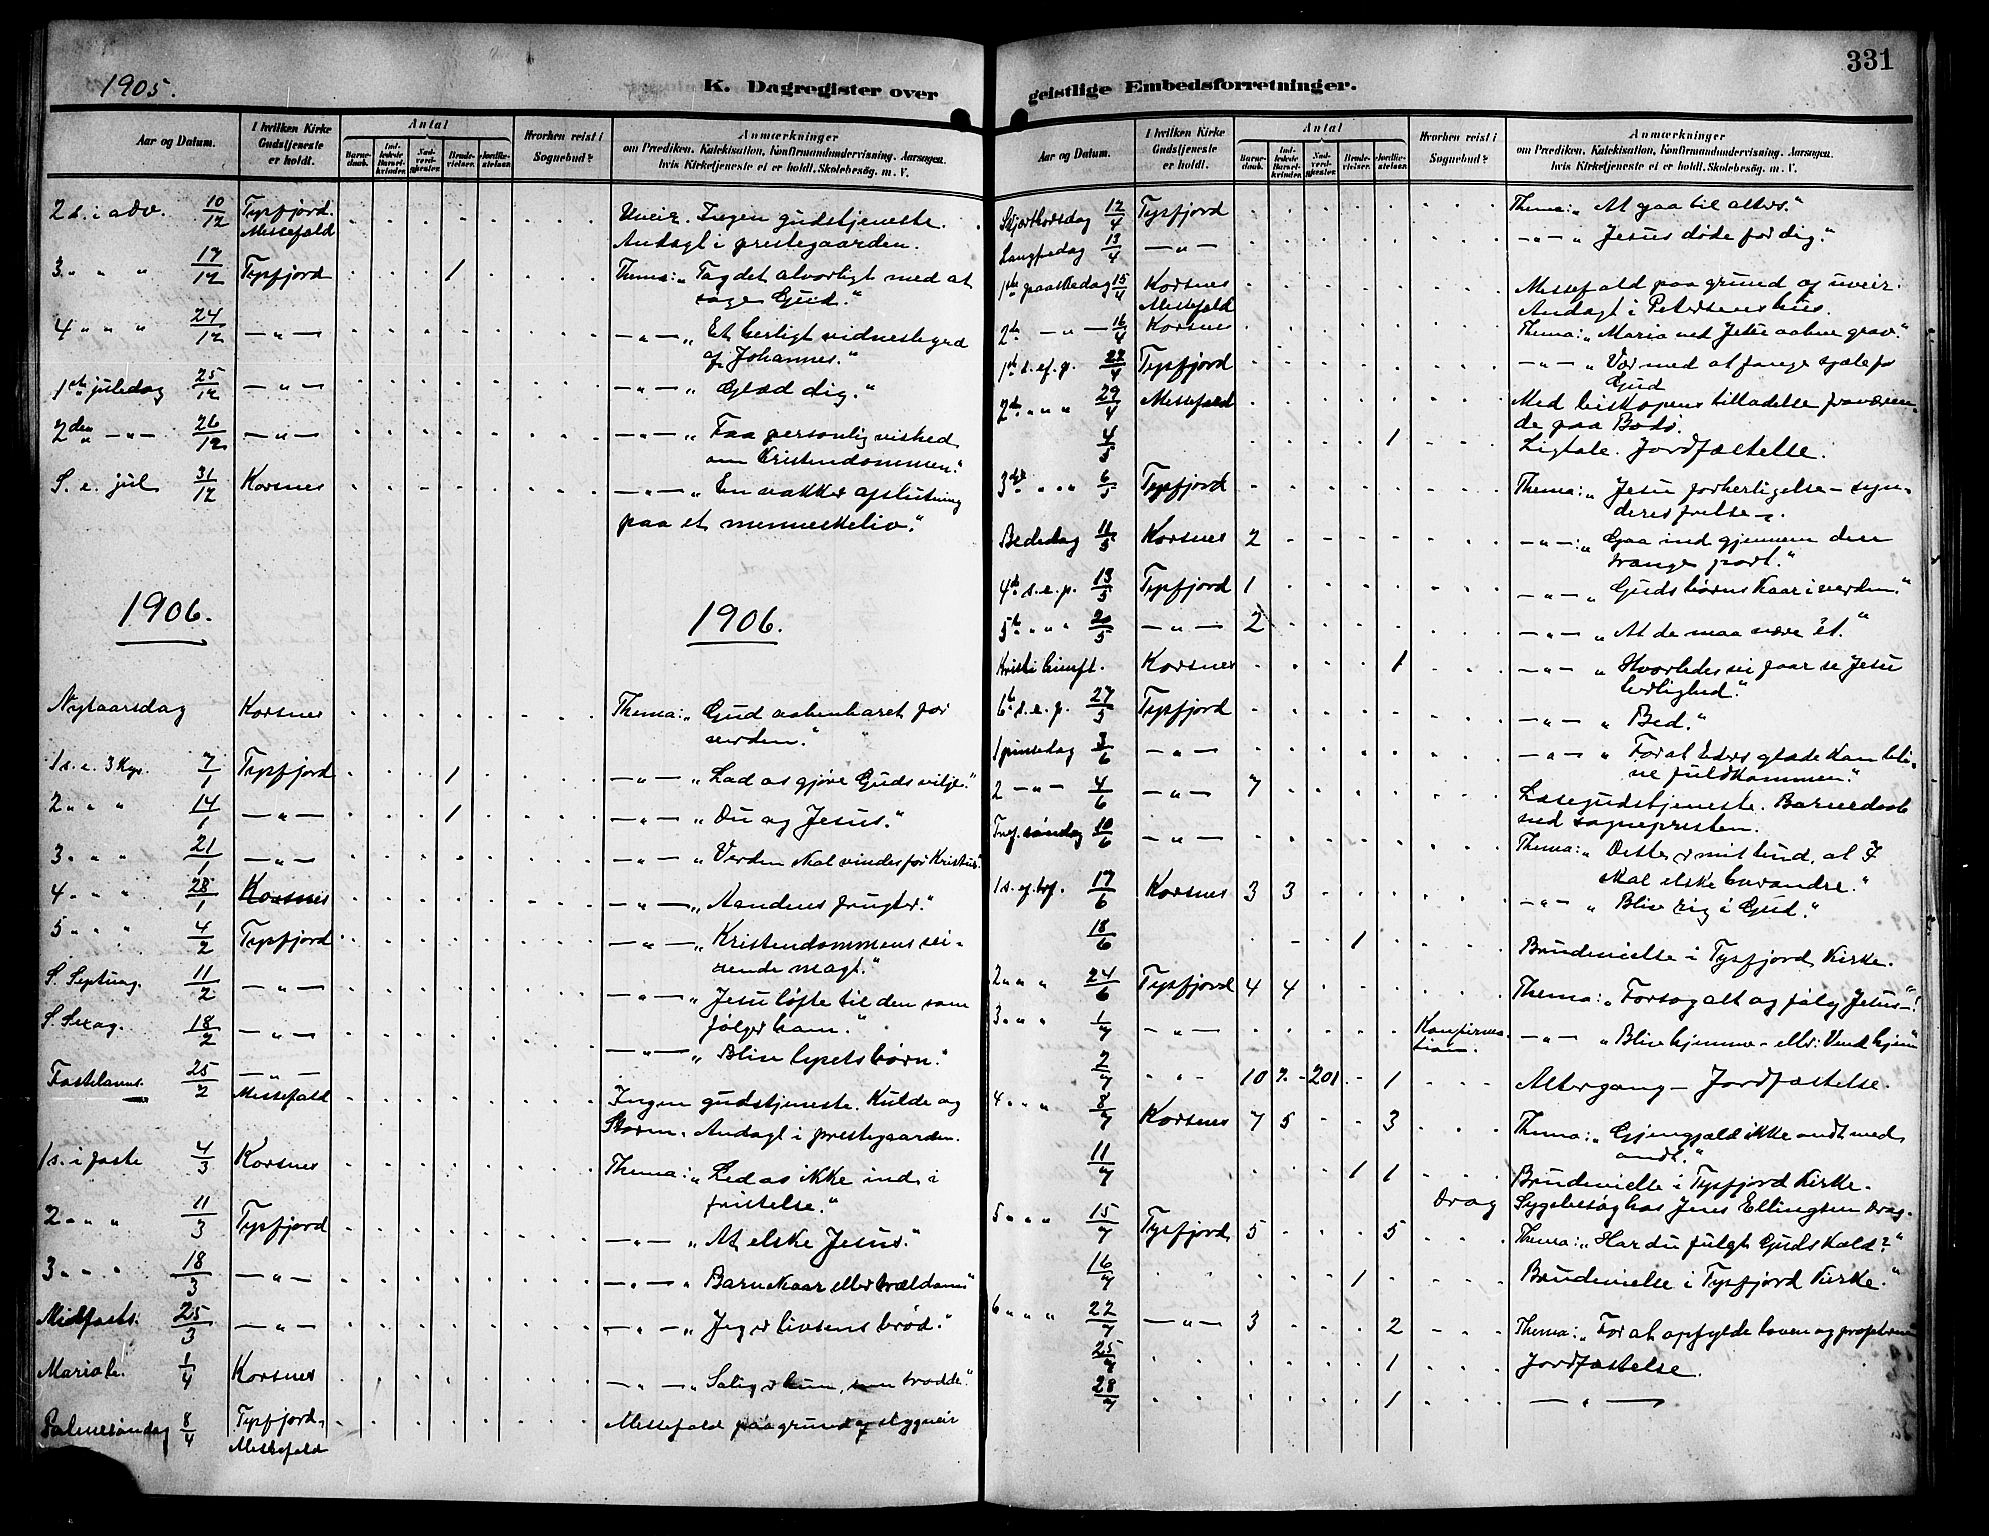 1905.
K. Dagregister over
Aar og Datum.
I hvilken Kirke Gudstjeneste er holdt.
Antal
Barnedaab.
Indledede Barselkvinder.
Nadverdgjester.
Brudevielser.
Jordfæstelser.
Hvorhen reist i Sognebud?
Anmærkninger
om Prædiken, Katekisation, Konfirmandundervisning, Aarsagen,
hvis Kirketjeneste ei er holdt, Skolebesøg m. V.
2 s. i adv. 10/12 Tysfjord. Uveir. Ingen gudstjeneste.
Messefald Andagt i prestegaarden.
3. " " " 17/12 Tysfjord 1 Thema: „Tag det alvorligt med at
søge Gud."
4 " " " 24/12 — " — — " — „Et herligt vidnesbyrd
af Johannes."
1ste juledag 25/12 — " — — " — „Glæd dig."
2den — " — 26/12 — " — — " — „Faa personlig vished
om Kristendommen."
S. e. jul 31/12 Korsnes — " — „En vakker afslutning
paa et menneskeliv."
1906. 1906.
Nytaarsdag Korsnes Thema: „Gud aabenbaret for
verden."
1 s. e. 3 Kgr. 7/1 Tysfjord 1 — " — „Lad os gjøre Guds vilje."
2 " " " 14/1 — " — 1 — " — „Du og Jesus."
3 " " " 21/1 — " — — " — „Verden skal vindes for Kristus."
4 " " " 28/1 Korsnes — " — „Aandens frugter."
5 " " " 4/2 Tysfjord — " — „Kristendommens sei-
rende magt."
S. Septuag. 11/2 — " — — " — „Jesu løfte til den som
følger ham."
S. Sexag. 18/2 — " — — " — „Blive lysets børn."
Fastelavns. 25/2 — " — Ingen gudstjeneste. Kulde og
Messefald Storm. Andagt i prestegaarden.
1 s. i faste 4/3 Korsnes Thema: „Led os ikke ind i
fristelse."
2 " " " 11/3 Tysfjord — " — „At elske Jesus."
3 " " " 18/3 — " — — " — „Barnekaar eller trældom"
Midfasts. 25/3 — " — — " — „Jeg er livsens brød."
Maria b. 1/4 Korsnes — " — „Salig er hun, som troede."
Palmesøndag 8/4 Tysfjord. Messefald paa grund af stygveir
Messefald
331
geistlige Embedsforretninger.
Aar og Datum.
I hvilken Kirke Gudstjeneste er holdt.
Antal
Barnedaab.
Indledede Barselkvinder.
Nadverdgjester.
Brudevielser.
Jordfæstelser.
Hvorhen reist i Sognebud?
Anmærkninger
om Prædiken, Katekisation, Konfirmandundervisning, Aarsagen,
hvis Kirketjeneste ei er holdt, Skolebesøg m. V.
Skjærthorsdag 12/4 Tysfjord Thema: „At gaa til alters."
Langfredag 13/4 — " — — " — „Jesus døde for dig."
1ste paaskedag 15/4 Korsnes Messefald paa grund af uveir.
Messefald Andagt i Petersens hus.
2den — " — 16/4 Korsnes Thema: „Maria ved Jesu aabne grav."
1ste s. ef. p. 22/4 Tysfjord — " — „Vær med at fange sjæle for
Gud
2den " " " 29/4 Messefald Med biskopens tilladelse fraværen-
de paa Bodø.
4/5 1 Ligtale. Jordfæstelse.
3die " " " 6/5 Tysfjord Thema: „Jesu forherligelse – syn-
deres frelse –.
Bededag 11/5 Korsnes 2 — " —: „Gaa ind gjennem den
trange port."
4de s. e. p. 13/5 Tysfjord 1 — " — „Guds børns kaar i verden."
5te " " " 20/5 — " — 2 — " — „At de maa være ét."
Kristi himft. Korsnes 1 — " — „Hvorledes vi faar se Jesu
herlighed."
6te s. e. p. 27/5 Tysfjord — " — „Bed."
1 pinsedag 3/6 — " — — " — „For at Eders glæde kan bli-
ve fuldkommen."
2 — " — 4/6 — " — 7 Læsegudstjeneste. Barnedaab
ved sognepresten.
Tref. søndag 10/6 — " — Thema: „Dette er mit bud, at I
skal elske hverandre."
1 s. ef. tref. 17/6 Korsnes 3 3 — " — „Blive rig i Gud."
18/6 1 Brudevielse i Tysfjord Kirke.
2 " " " 24/6 Tysfjord 4 4 Thema: „Forsag alt og følg Jesus" –!
3 " " " 1/7 — " — Konfirma-
tion. — " — „Blive hjemme – eller: Vend hjem"
2/7 " " 10 7 - 201 1 Altergang – Jordfæstelse.
4 " " " 8/7 Korsnes 7 5 3 Thema: „Gjengjæld ikke ondt med
ondt."
11/7 1 1 Brudevielse i Tysfjord Kirke.
Drag Sygebesøg hos Jens Ellingsen Drag.
5 " " " 15/7 Tysfjord 5 5 Thema: „Har du fulgt Guds kald?"
16/7 1 Brudevielse i Tysfjord Kirke."
6 " " " 22/7 — " — 3 2 Thema: „For at opfylde loven og profeterne
25/7 1 Jordfæstelse.
28/7 1 — " —